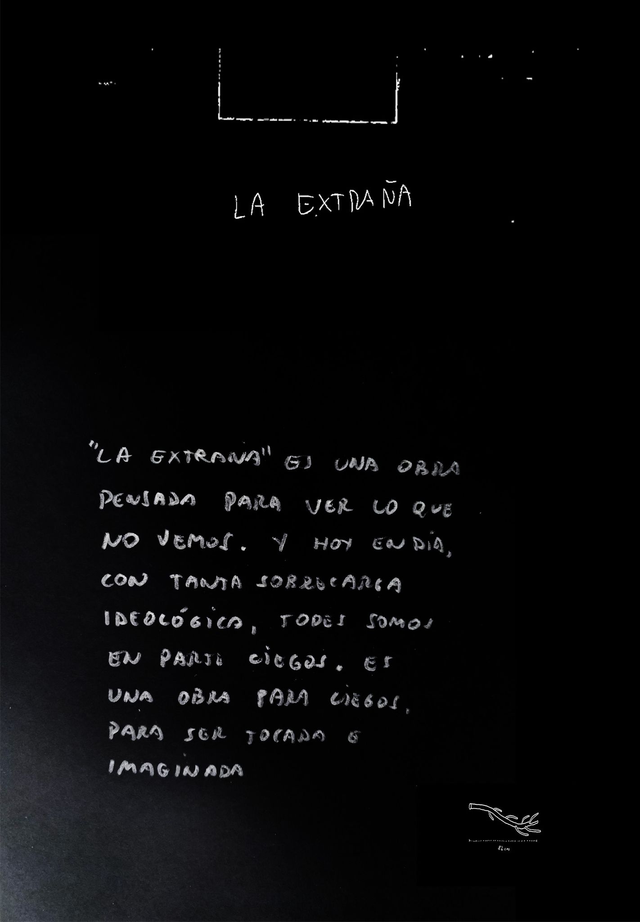 LA EXTRAÑA
"LA EXTRAÑA" ES UNA OBRA
PENSADA PARA VER LO QUE
NO VEMOS. Y HOY EN DÍA,
CON TANTA SOBRECARGA
IDEOLÓGICA, TODES SOMOS
EN PARTE CIEGOS. ES
UNA OBRA PARA CIEGOS,
PARA SER TOCADA E
IMAGINADA